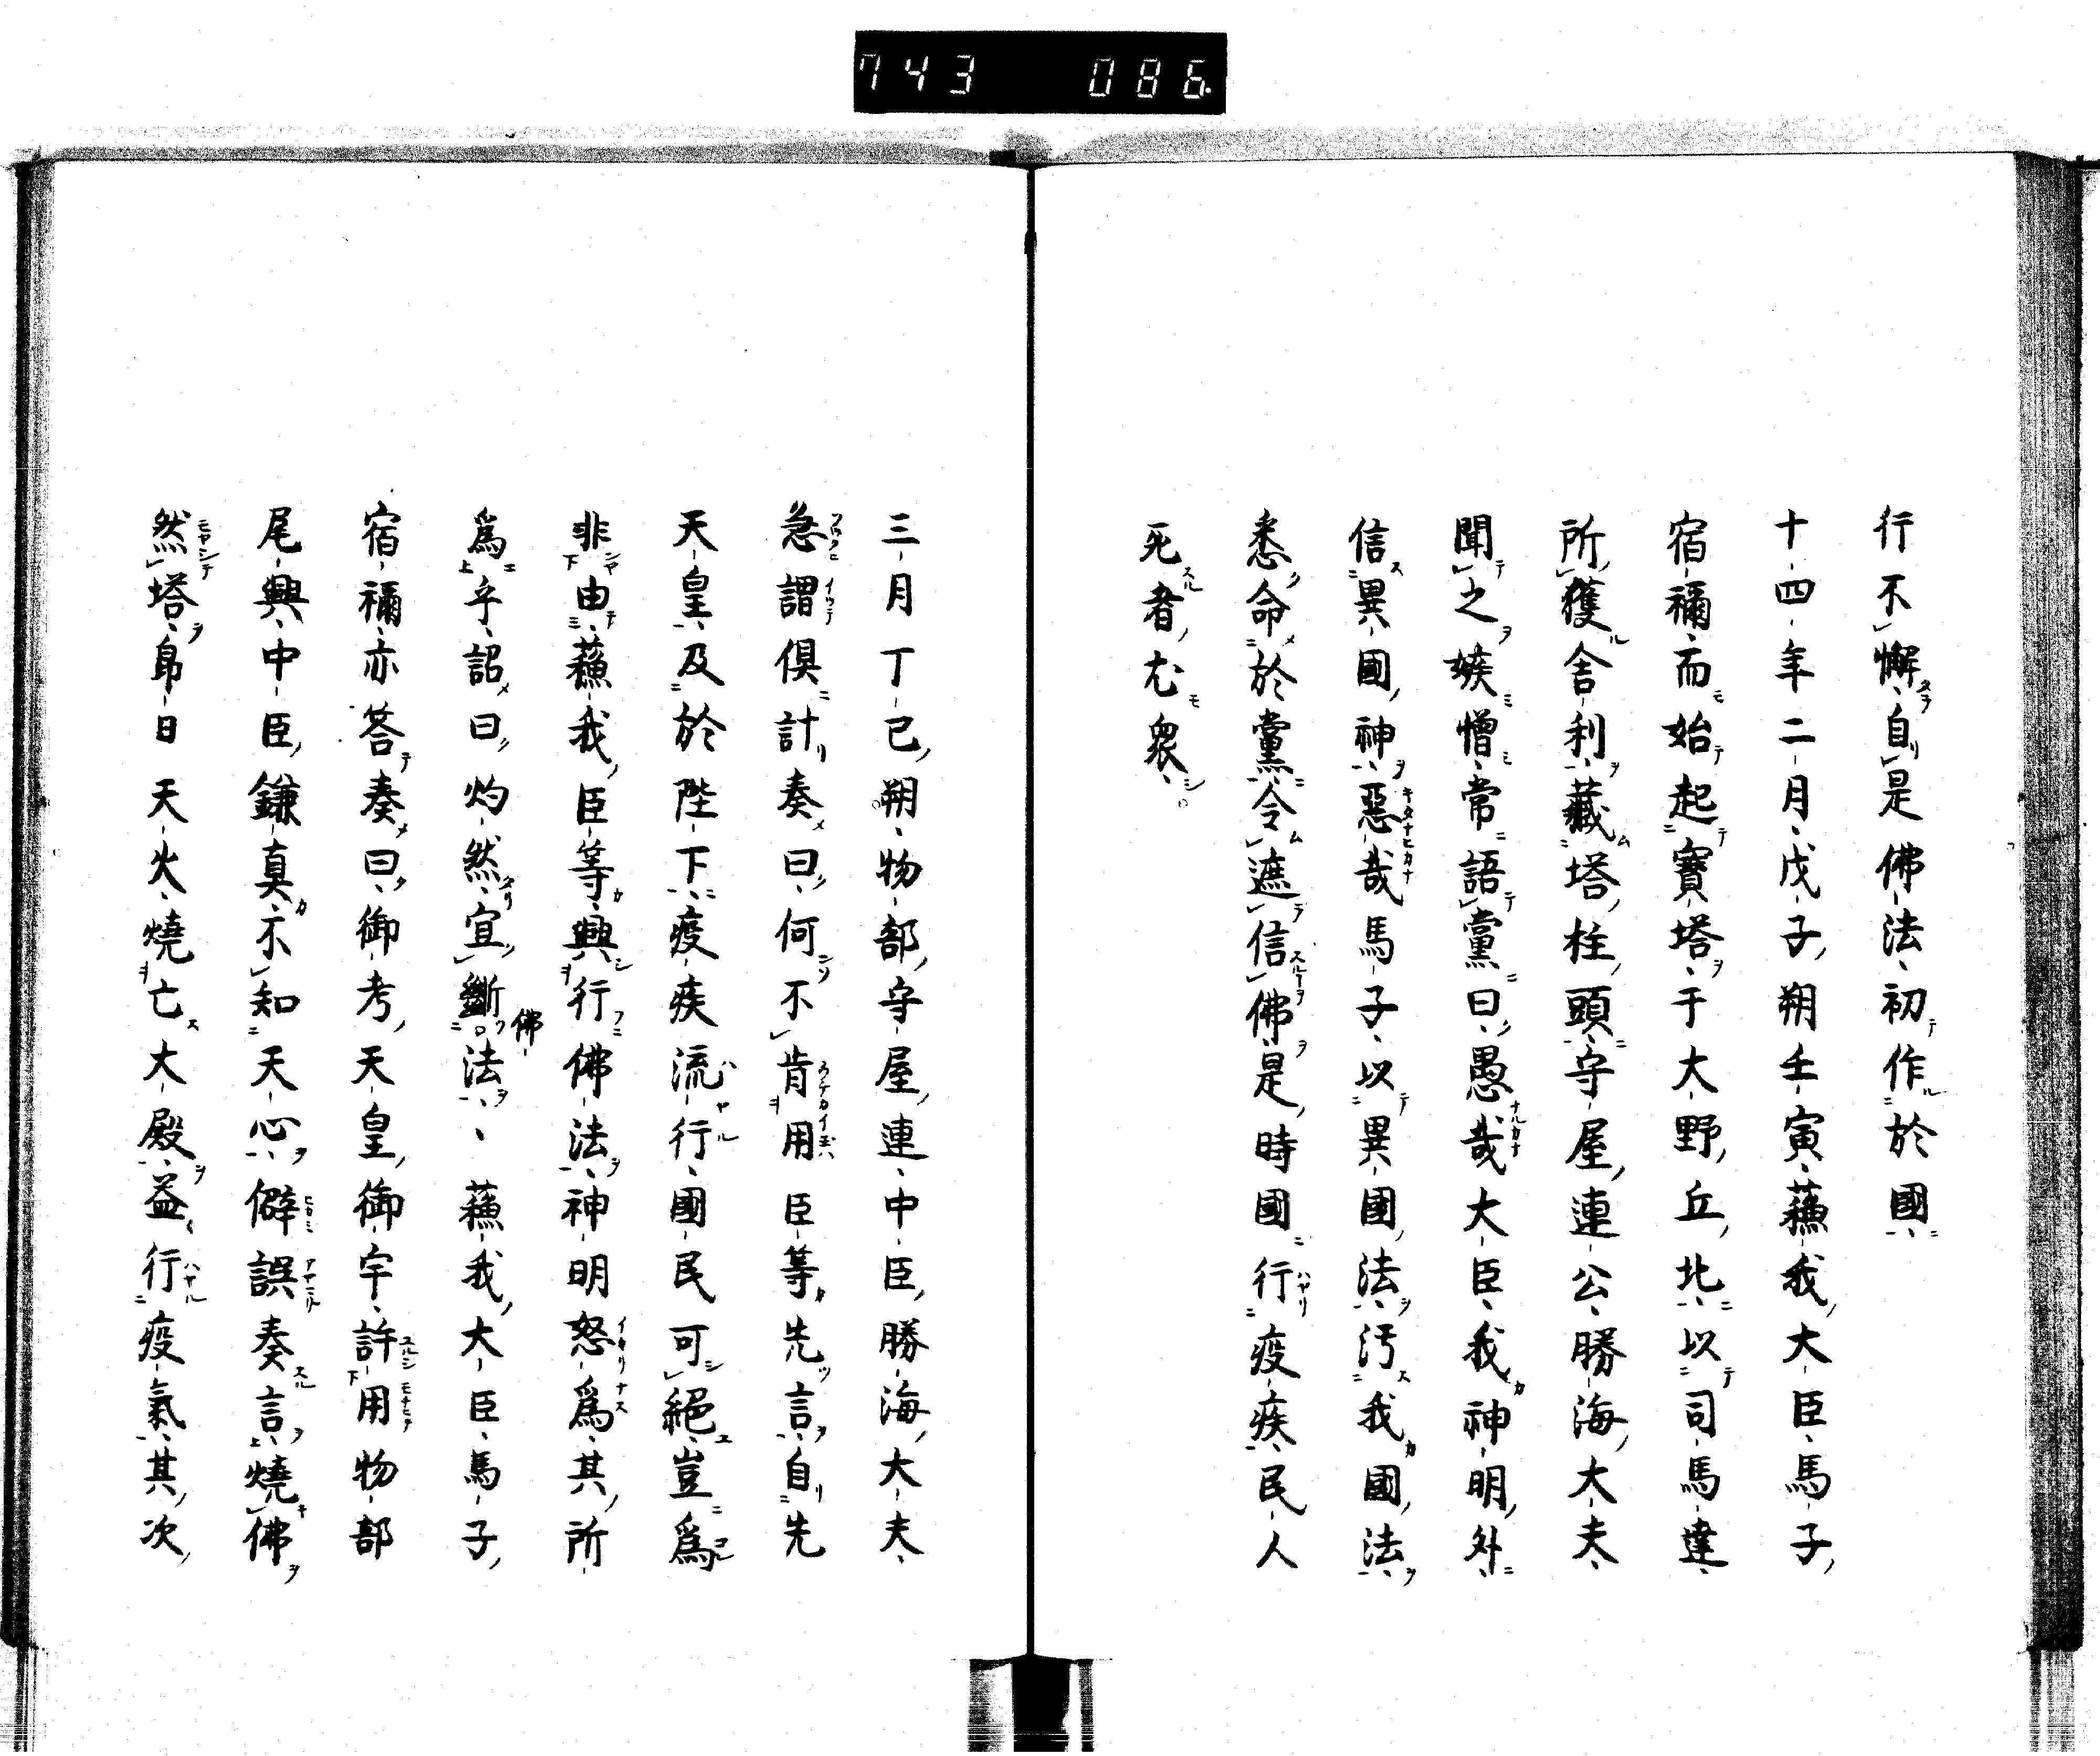 743 086.
行不懈自是佛法初作於國
十四年二月戊子朔壬寅蘓我大臣馬子
宿禰而始起寶塔于大野丘北以司馬達
所獲舍利藏塔柱頭守屋連公勝海大夫
聞之嫉憎常語黨曰愚哉大臣我神明外
信異國神惡哉馬子以異國法汚我國法
悉命於黨令遮信佛是時國行疫疾民人
死者尤衆
三月丁已朔物部守屋連中臣勝海大夫
急謂俱計奏曰何不肯用臣等先言自先
天皇及於陛下疫疾流行國民可絕豈爲
非由蘓我臣等興行佛法神明怒爲其所
爲乎詔曰灼然宜斷佛法蘓我大臣馬子
宿禰亦荅奏曰御考天皇御宇許用物部
尾興中臣鎌真不知天心僻誤奏言燒佛
然塔即日天火燒亡大殿益行疫氣其次